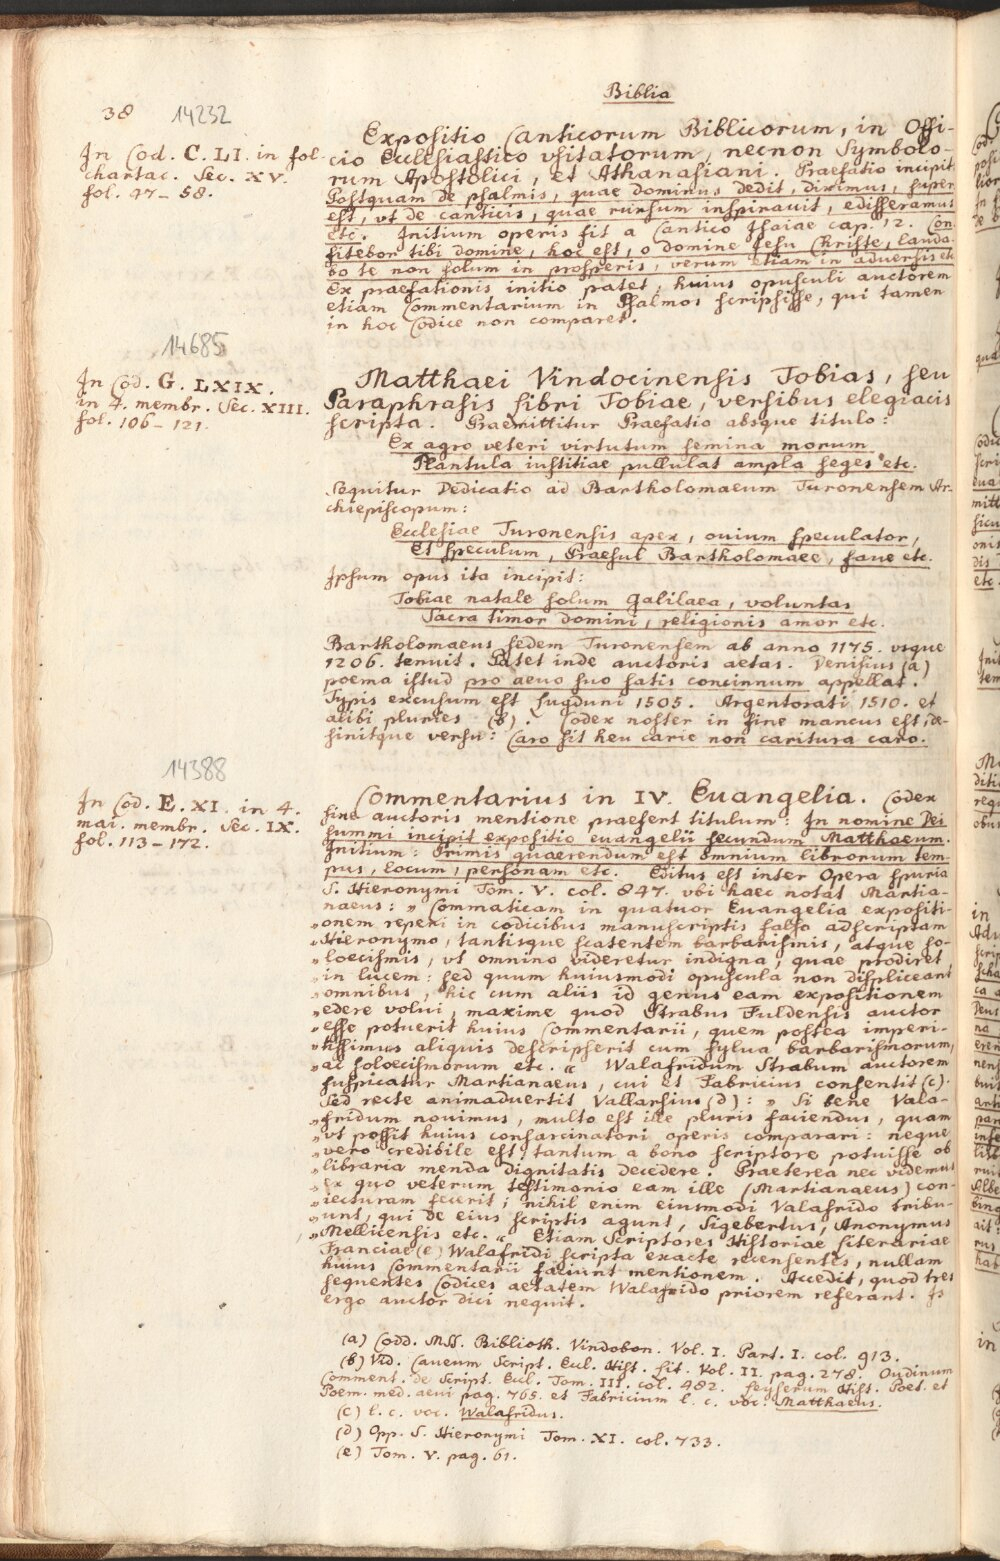 Biblia
38 14232
In Cod. C. LI. in fol.
chartac. Sec. XV.
fol. 47 – 58.
Expositio Canticorum Biblicorum, in Offi-
cio Ecclesiastico vsitatorum, necnon Symbolo-
rum Apostolici, et Athanasiani. Praefatio incipit
Postquam de psalmis, quae dominus dedit, diximus, super
est, vt de canticis, quae rursum inspirauit, edisseramus
etc. Initium operis fit a Cantico Isaiae cap. 12. Con
fitebor tibi domine, hoc est, o domine Iesu Christe, lauda-
bo te non solum in prosperis, verum etiam in aduersis etc
Ex praefationis initio patet, huius opusculi auctorem
etiam Commentarium in Psalmos scripsisse, qui tamen
in hoc Codice non comparet.
14685
In Cod. G. LXIX.
in 4. membr. Sec. XIII.
fol. 106 – 121.
Matthaei Vindocinensis Tobias, seu
Paraphrasis Libri Tobiae, versibus elegiacis
scripta. Praemittitur Praefatio absque titulo:
Ex agro veteri virtutum semina morum
Plantula iustitiae pullulat ampla seges etc.
Sequitur Dedicatio ad Bartholomaeum Turonensem Ar-
chiepiscopum:
Ecclesiae Turonensis apex, ouium speculator,
Et speculum, Praesul Bartholomaee, faue etc.
Ipsum opus ita incipit:
Tobiae natale solum Galilaea, voluntas
Sacra timor domini, religionis amor etc.
Bartholomaeus sedem Turonensem ab anno 1175. vsque
1206. tenuit. Patet inde auctoris aetas. Denisius (a)
poema istud pro aeuo suo satis concinnum appellat.
Typis excusum est Lugduni 1505. Argentorati 1510. et
alibi pluries (b). Codex noster in fine mancus est, de-
sinitque versu: Caro sit heu carie non caritura caro.
14388
In Cod. E. XI. in 4.
mai. membr. Sec. IX.
fol. 113 – 172.
Commentarius in IV. Euangelia. Codex
sine auctoris mentione praefert titulum: In nomine Dei
summi incipit expositio euangelii secundum Matthaeum.
Initium: Primis quaerendum est omnium librorum tem-
pus, locum, personam etc. Editus est inter Opera spuria
S. Hieronymi Tom. V. col. 847. vbi haec notat Martia-
naeus: „ Commaticam in quatuor Euangelia expositi-
„onem reperi in codicibus manuscriptis falso adscriptam
„Hieronymo, tantisque scatentem barbarismis, atque so-
„loecismis, vt omnino videretur indigna, quae prodiret
„in lucem: sed quum huiusmodi opuscula non displiceant
„omnibus, hic cum aliis id genus eam expositionem
„edere volui, maxime quod Strabus Fuldensis auctor
„esse potuerit huius Commentarii, quem postea imperi-
„tissimus aliquis descripserit cum sylua barbarismorum,
„ac soloecismorum etc. “ Walafridum Strabum auctorem
suspicatur Martianaeus, cui et Fabricius consentit (c).
Sed recte animaduertit Vallarsius (d): „ Si bene Vala-
„fridum nouimus, multo est ille pluris faciendus, quam
„vt possit huius consarcinatori operis comparari: neque
„vero credibile est, tantum a bono scriptore potuisse ob
„libraria menda dignitatis decedere. Praeterea nec videmus
„ex quo veterum testimonio eam ille (Martianaeus) con-
„iecturam fecerit; nihil enim eiusmodi Valafrido tribu-
„unt, qui de eius scriptis agunt, Sigebertus, Anonymus
„Mellicensis etc. “ Etiam Scriptores Historiae literariae
Franciae (e) Walafridi scripta exacte recensentes, nullam
huius Commentarii faciunt mentionem. Accedit, quod tres
sequentes Codices aetatem Walafrido priorem referant. Is
ergo auctor dici nequit.
(a) Codd. MSS. Biblioth. Vindobon. Vol. I. Part. I. col. 913.
(b) Vid. Caueum Script. Eccl. Hist. Lit. Vol. II. pag. 278. Oudinum
Comment. de Script. Eccl. Tom. III. col. 482. Leyserum Hist. Poet. et
Poem. med. aeui pag. 765. et Fabricium l. c. voc. Matthaeus.
(c) l. c. voc. Walafridus.
(d) Opp. S. Hieronymi Tom. XI. col. 733.
(e) Tom. V. pag. 61.